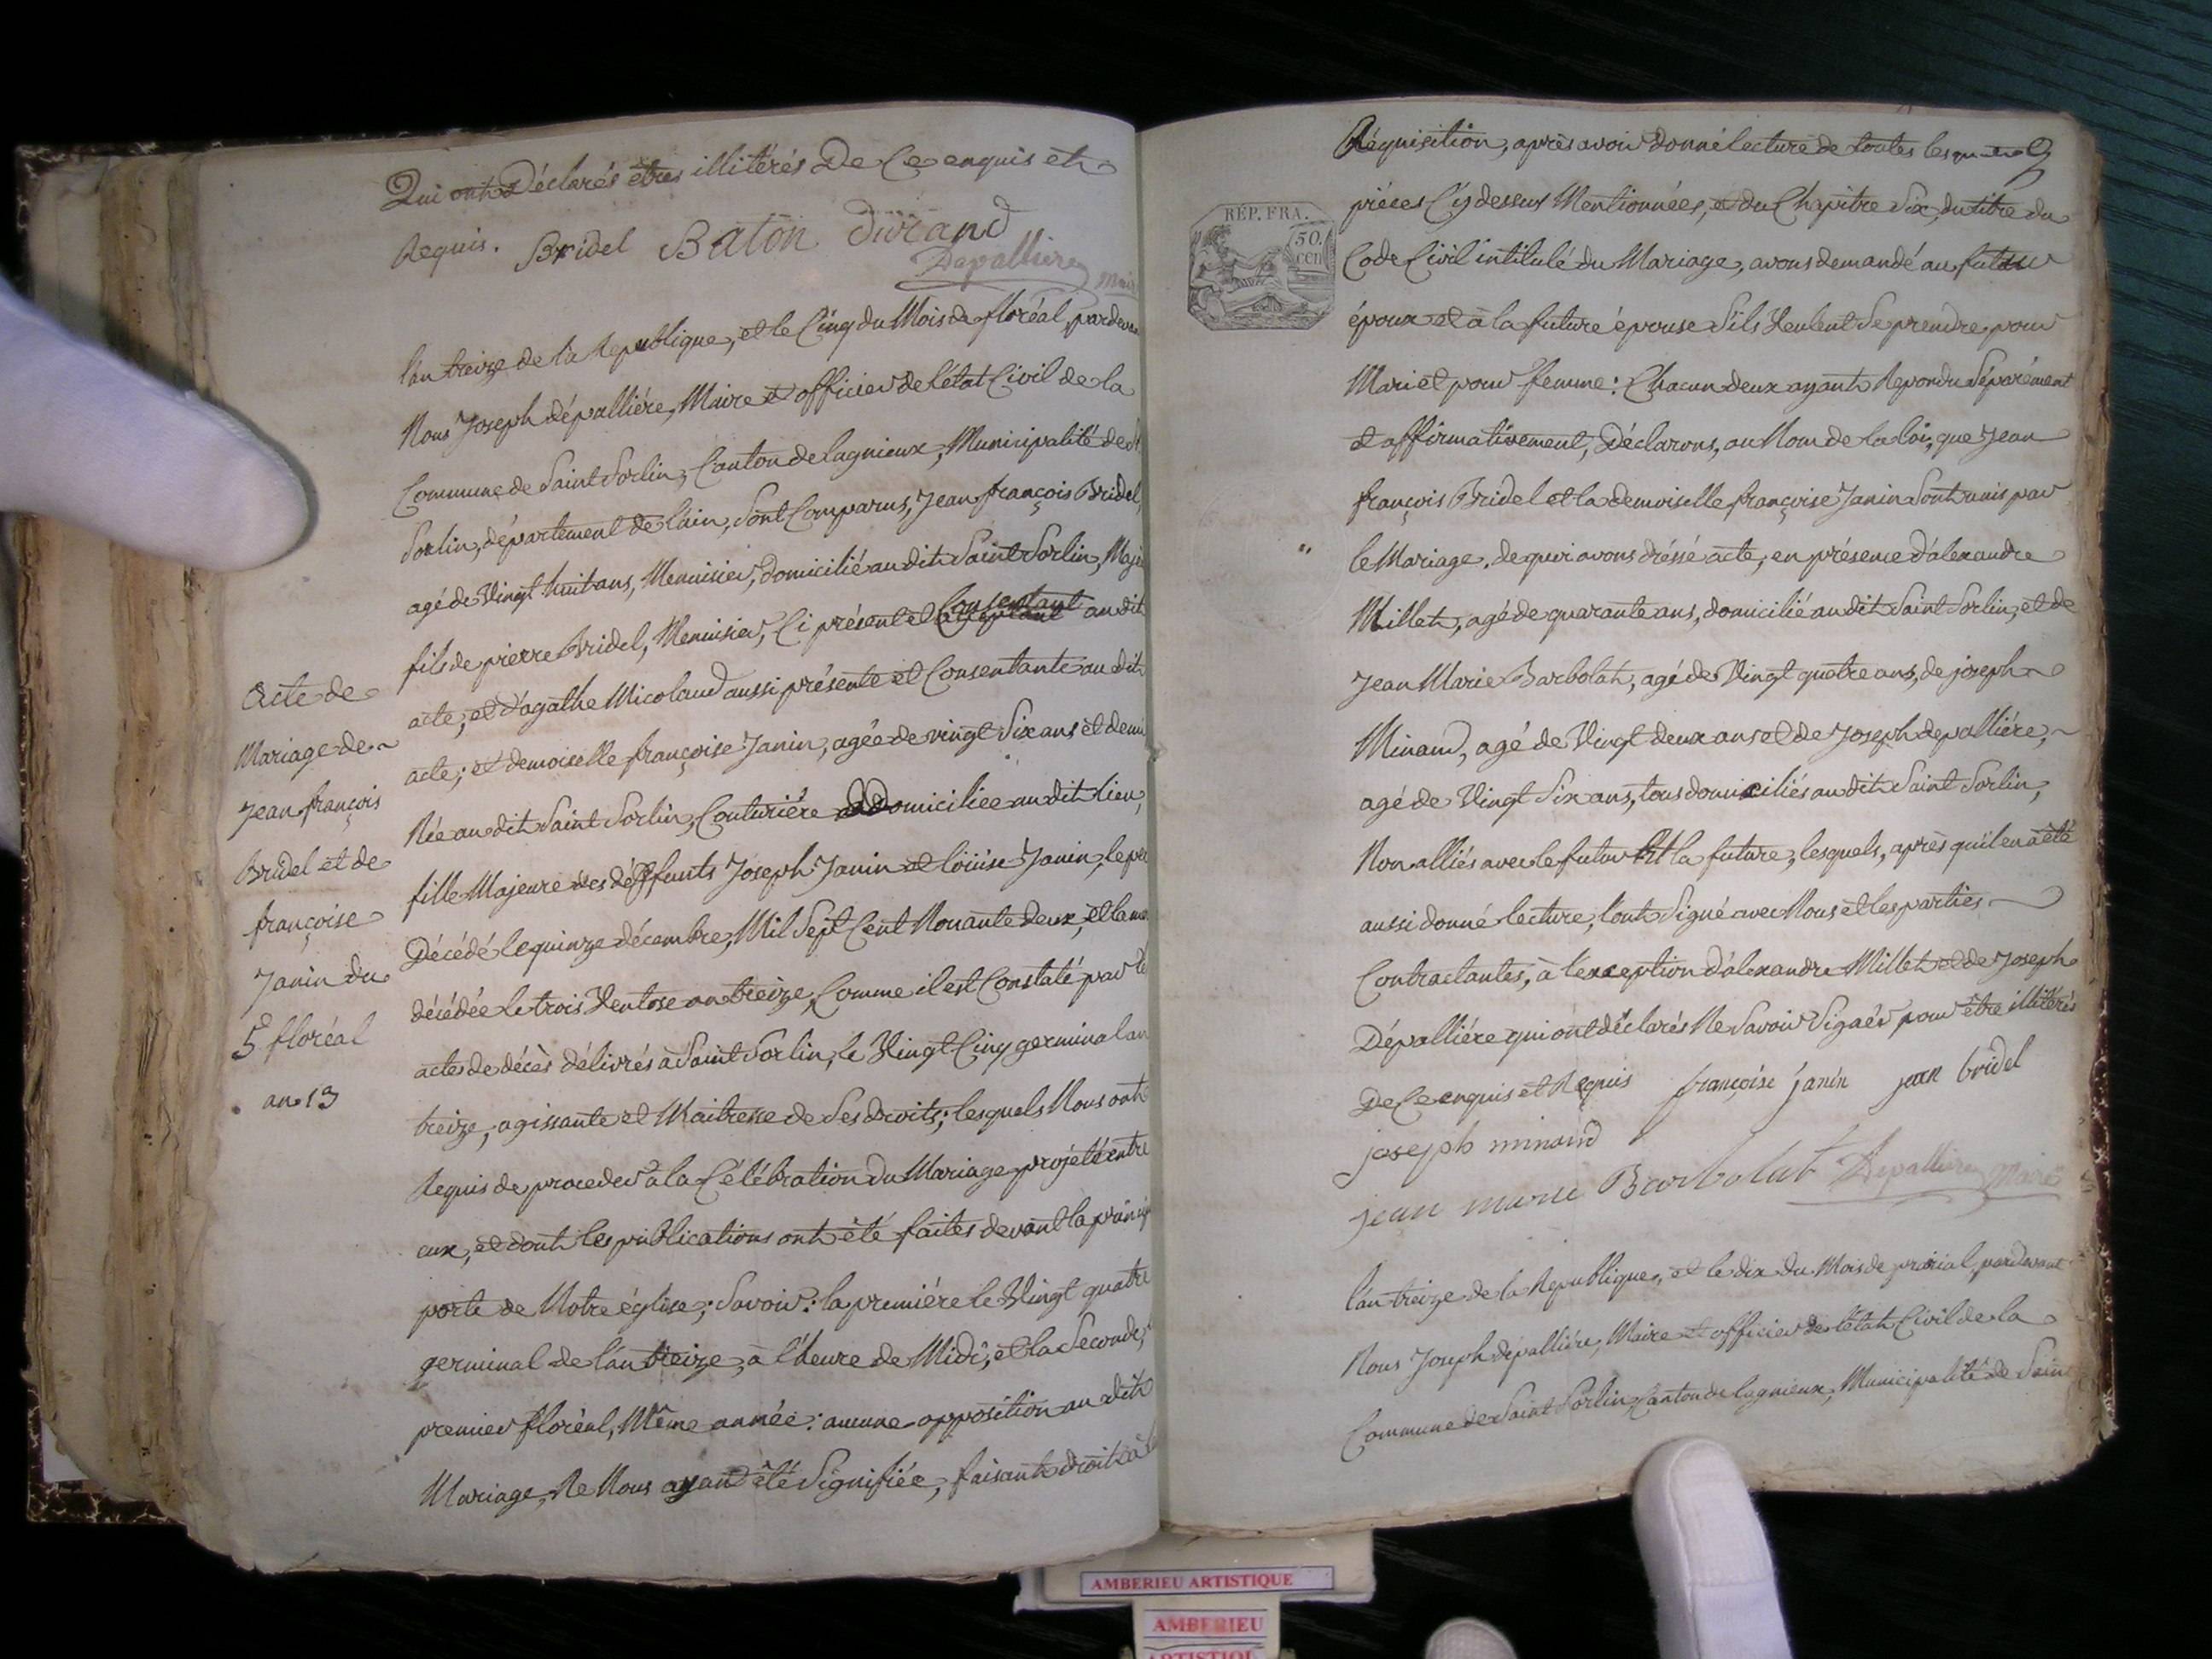 Qui ont Déclarés êtres illitérés De Ce enquis et
Requis. Bridel Baton Durand
Depalliere maire
l'an treize de la Republique, et le Cinq du Mois de floréal, pardevant
Nous Joseph dépalliére, Maire et officier de létat Civil de la
Commune de Saint Sorlin, Canton de lagnieux, Municipalité de St
Sorlin, département de lain, Sont Comparus, Jean françois Bridel,
agé de Vingt huit ans, Menuisier, domicilié au dit Saint Sorlin, Majeur
fils de pierre Bridel, Menuisier, Ci présent et Consentant au dit
acte, et d'agathe Micolaud aussi présente et Consentante au dit
acte; et demoiselle françoise Janin, agée de vingt Six ans et demi
Née au dit Saint Sorlin, Couturiére et Domiciliée au dit lieu,
fille Majeure des déffunts Joseph Janin et loüise Janin, le pere
Décédé le quinze décembre, Mil Sept Cent Nonante deux, et la mere
décédée le trois Ventose an treize, Comme il est Constaté par les
actes de décès délivrés à Saint Sorlin, le Vingt Cinq germinal an
treize, agissante et Maitresse de Ses droits; lesquels Nous ont
Requis de proceder a la Célébration du Mariage projeté entre
eux, et dont les publications ont été faites devant la principale
porte de Notre église; Savoir: la premiére le Vingt quatre
germinal de l'an treize, à l'heure de Midi, et la Seconde,
premier floréal, Même année: aucune opposition au dit
Mariage, Ne Nous ayand été Signifiée, faisant droit à
Acte de
Mariage de
Jean françois
Bridel et de
françoise
Janin du
5 floréal
an 13
Réquisition, après avoir donné lecture de toutes les
piéces Cy dessus Mentionnées, et du Chapitre Six, du titre du
Code Civil intitulé du Mariage, avons demandé au futur
époux et à la future épouse S'ils Veulent Se prendre pour
Mari et pour femme: Chacun deux ayant Repondu Séparément
et affirmativement, Déclarons, au Nom de la loi, que Jean
françois Bridel et la demoiselle françoise Janin Sont unis par
le Mariage. de quoi avons dréssé acte, en présence d'alexandre
Millet, agé de quarante ans, domicilié au dit Saint Sorlin, et de
Jean Marie Barbolat, agé de Vingt quatre ans, de joseph
Minand, agé de Vingt deux ans et de Joseph depalliére,
agé de Vingt Six ans, tous domiciliés au dit Saint Sorlin,
Non alliés avec le futur Et la future, lesquels, après qu'il en a été
aussi donné lecture, l'ont Signé avec Nous et les parties
Contractantes, à l'exception d'alexandre Millet et de Joseph
Dépalliére qui ont déclarés Ne Savoir Signér pour être illitérés
De Ce enquis et Requis françoise janin jean bridel
joseph minand
jean marie Barbolat Depalliere Maire
l'an treize de la Republique, et le dix du Mois de prairial, pardevant
Nous Joseph dépalliére, Maire et officier de létat Civil de la
Commune de Saint Sorlin, Canton de lagnieux, Municipalité de Saint
RÉP. FRA.
50.
CEN
AMBERIEU ARTISTIQUE
AMBERIEU
ARTISTIQ